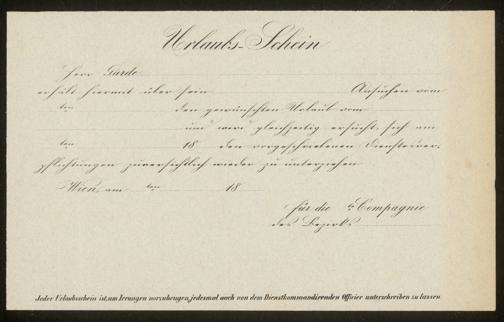 Urlaubs-Schein
Herr Garde
erhält hiermit über sein Ansuchen vom
ten den gewünschten Urlaub vom
und wird gleichzeitig ersucht, sich am
ten 18 den vorgeschriebenen Dienstesver-
pflichtungen zuversichtlich wieder zu unterziehen
Wien, am ten 18
für die te Compagnie
des Bezirks
Jeder Urlaubsschein ist, um Irrungen vorzubeugen, jedesmal auch von dem Dienstkommandirenden Officier unterschreiben zu lassen